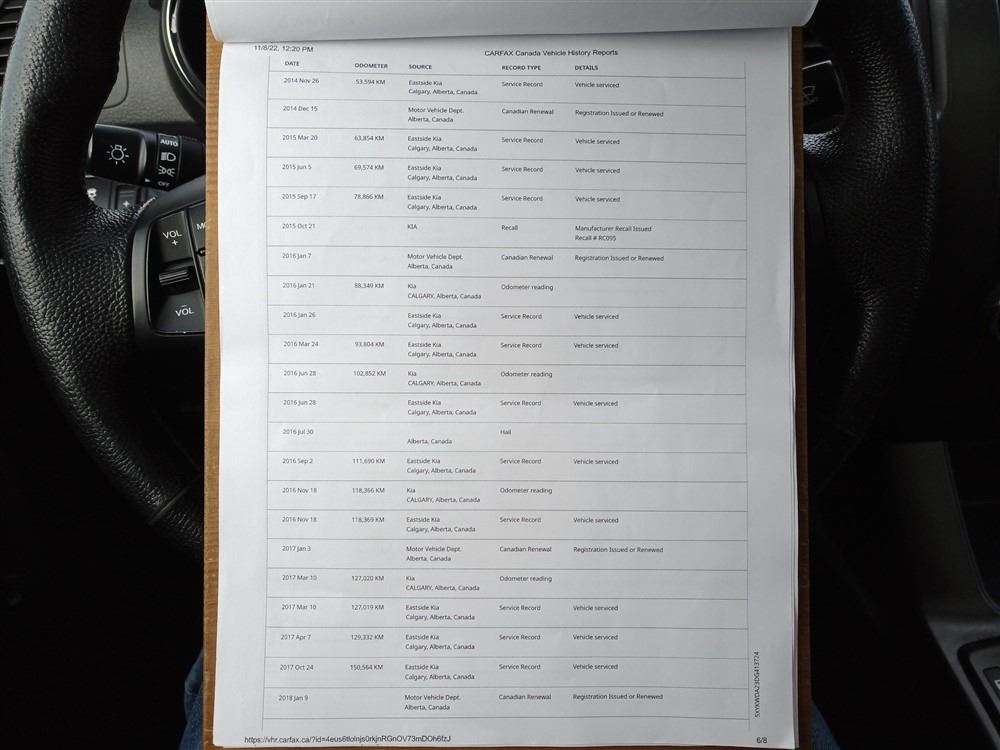 11/8/22, 12:20 PM CARFAX Canada Vehicle History Reports
DATE ODOMETER SOURCE RECORD TYPE DETAILS
2014 Nov 26 53,594 KM Eastside Kia Service Record Vehicle serviced
Calgary, Alberta, Canada
2014 Dec 15 Motor Vehicle Dept. Canadian Renewal Registration Issued or Renewed
Alberta, Canada
2015 Mar 20 63,854 KM Eastside Kia Service Record Vehicle serviced
Calgary, Alberta, Canada
2015 Jun 5 69,574 KM Eastside Kia Service Record Vehicle serviced
Calgary, Alberta, Canada
2015 Sep 17 78,866 KM Eastside Kia Service Record Vehicle serviced
Calgary, Alberta, Canada
2015 Oct 21 KIA Recall Manufacturer Recall Issued
Recall # RC095
2016 Jan 7 Motor Vehicle Dept. Canadian Renewal Registration Issued or Renewed
Alberta, Canada
2016 Jan 21 88,349 KM Kia Odometer reading
CALGARY, Alberta, Canada
2016 Jan 26 Eastside Kia Service Record Vehicle serviced
Calgary, Alberta, Canada
2016 Mar 24 93,804 KM Eastside Kia Service Record Vehicle serviced
Calgary, Alberta, Canada
2016 Jun 28 102,852 KM Kia Odometer reading
CALGARY, Alberta, Canada
2016 Jun 28 Eastside Kia Service Record Vehicle serviced
Calgary, Alberta, Canada
2016 Jul 30 Hail
Alberta, Canada
2016 Sep 2 111,690 KM Eastside Kia Service Record Vehicle serviced
Calgary, Alberta, Canada
2016 Nov 18 118,366 KM Kia Odometer reading
CALGARY, Alberta, Canada
2016 Nov 18 118,369 KM Eastside Kia Service Record Vehicle serviced
Calgary, Alberta, Canada
2017 Jan 3 Motor Vehicle Dept. Canadian Renewal Registration Issued or Renewed
Alberta, Canada
2017 Mar 10 127,020 KM Kia Odometer reading
CALGARY, Alberta, Canada
2017 Mar 10 127,019 KM Eastside Kia Service Record Vehicle serviced
Calgary, Alberta, Canada
2017 Apr 7 129,332 KM Eastside Kia Service Record Vehicle serviced
Calgary, Alberta, Canada
2017 Oct 24 150,564 KM Eastside Kia Service Record Vehicle serviced
Calgary, Alberta, Canada
2018 Jan 9 Motor Vehicle Dept. Canadian Renewal Registration Issued or Renewed
Alberta, Canada
5XYKWDA23DG413724
https://vhr.carfax.ca/?id=4eus6tlolnjs0rkjnRGnOV73mDOh6fzJ 6/8
AUTO
OFF
VOL +
VOL −